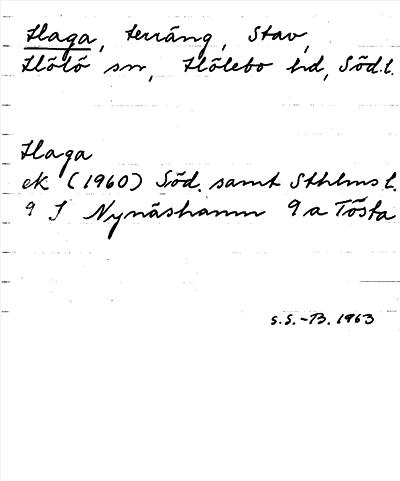 Haga, terräng, Stav,
Hölö sn, Hölebo hd, Söd.l.
Haga
ek (1960) Söd. samt Sthlms l.
9 I Nynäshamn 9 a Tösta
S.S.-B. 1963